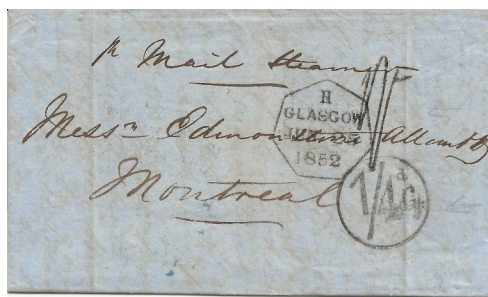 pr Mail Steamer
H
GLASGOW
1852
Messrs Edmonstone Allan & Co
Montreal